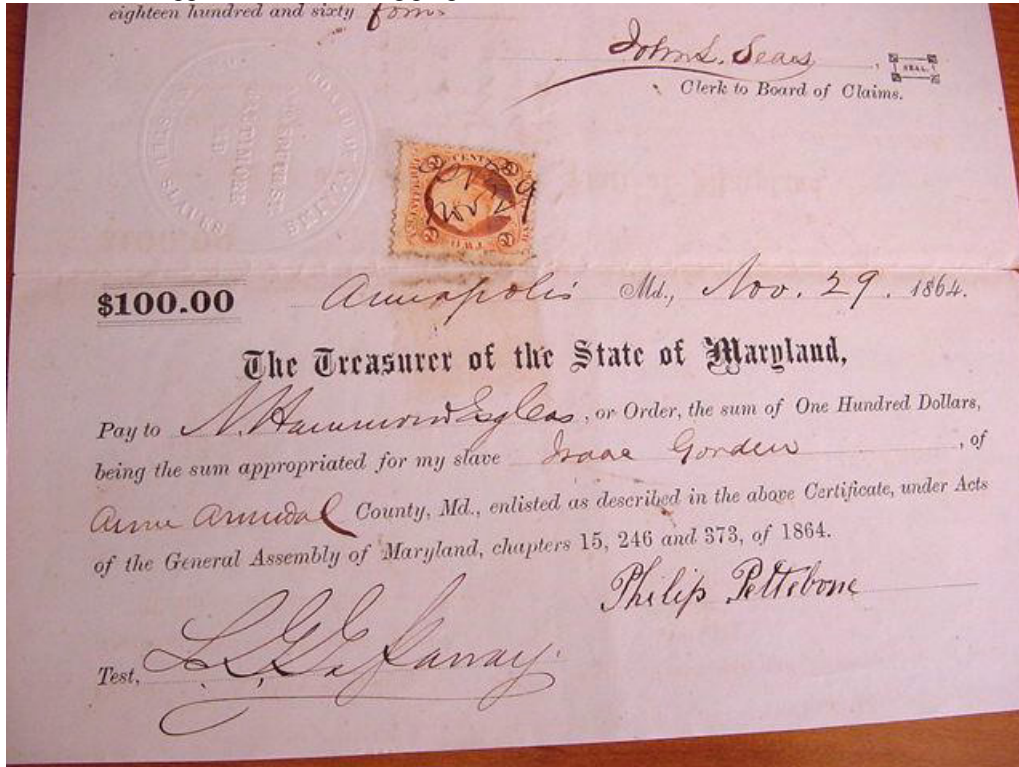 eighteen hundred and sixty four
John S. Sears, SEAL.
Clerk to Board of Claims.
BOARD OF CLAIMS
SLAVES
BALTIMORE
MD
CENTS
$100.00 Annapolis Md., Nov. 29. 1864.
The Treasurer of the State of Maryland,
Pay to N. Hammond Egleas, or Order, the sum of One Hundred Dollars,
being the sum appropriated for my slave Isaac Gorden, of
Anne Arundal County, Md., enlisted as described in the above Certificate, under Acts
of the General Assembly of Maryland, chapters 15, 246 and 373, of 1864.
Philip Pettebone
Test,